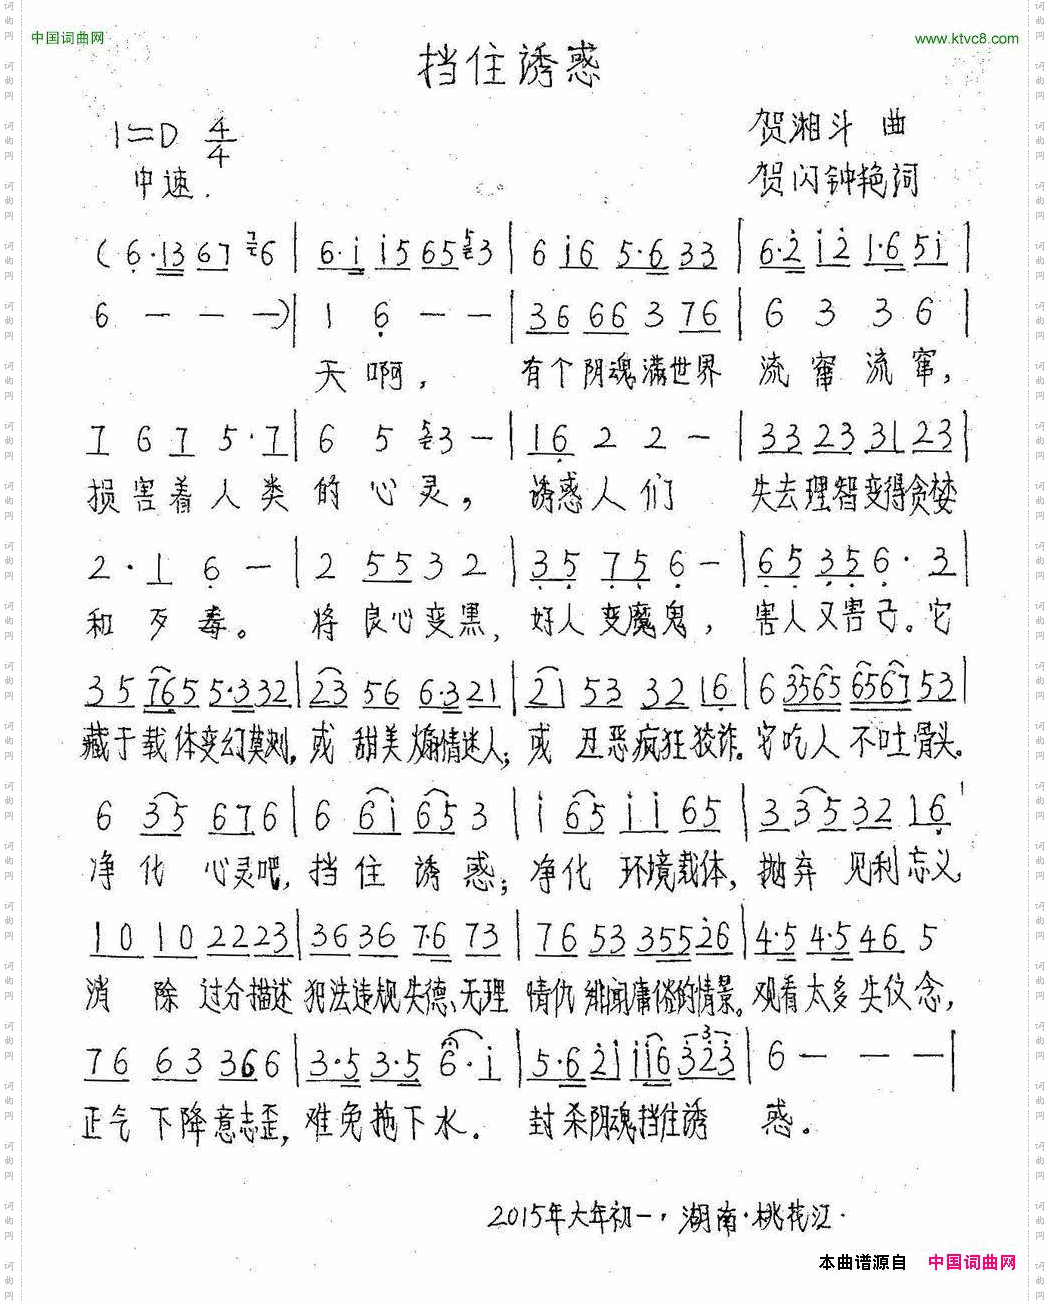 中国词曲网
www.ktvc8.com
挡住诱惑
1=D 4/4
贺湘斗 曲
中速.
贺闪钟艳词
(6·13 67 76 | 6·i i5 65 53 | 6 i6 5·6 33 | 6·2 i2 1·6 5i |
6 — — —) | 1 6 — — | 36 66 3 76 | 6 3 3 6 |
天啊, 有个阴魂满世界 流窜 流窜,
7 6 7 5·7 | 6 5 53 — | 16 2 2 — | 33 23 31 23 |
损害着人类 的心灵, 诱惑人们 失去理智变得贪婪
2·1 6 — | 2 55 3 2 | 35 75 6 — | 65 35 6·3 |
和歹毒。 将良心变黑, 好人变魔鬼, 害人又害己。它
35 765 5·3 32 | 23 56 6·3 21 | 21 53 32 16 | 6 3565 6567 53 |
藏于载体变幻莫测, 或 甜美煽情迷人; 或 丑恶疯狂狡诈。它吃人 不吐骨头.
6 35 67 6 | 6 6i 65 3 | i 65 ii 65 | 3 35 32 16 |
净化 心灵吧, 挡住诱惑; 净化 环境载体, 抛弃 见利忘义
10 10 22 23 | 36 36 7·6 73 | 76 53 355 26 | 4·5 4·5 46 5
消 除 过分描述 犯法违规失德、无理 情仇 绯闻庸俗的情景。观看太多失仪念,
76 63 366 | 3·5 3·5 6·i | 5·6 2i ii6 323 | 6 — — — |
正气下降意志歪, 难免拖下水. 封杀阴魂挡住诱 惑。
2015年大年初一, 湖南·桃花江.
本曲谱源自 中国词曲网